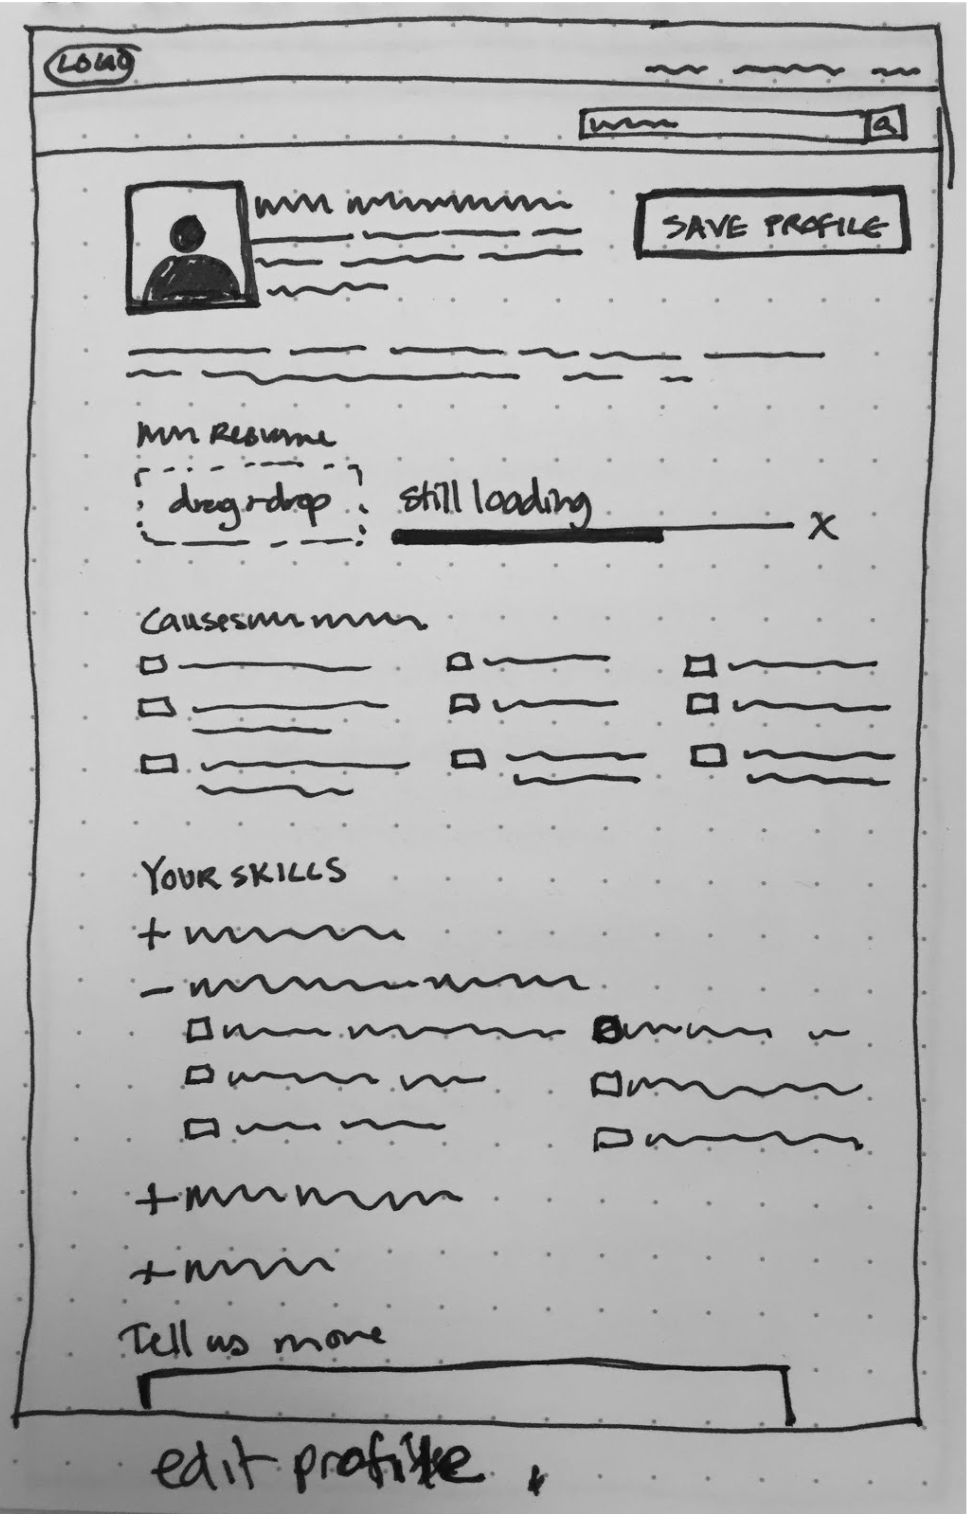 LOGO
SAVE PROFILE
Resume
drag + drop
still loading
X
Causes
YOUR SKILLS
+
-
+
+
Tell us more
edit profile